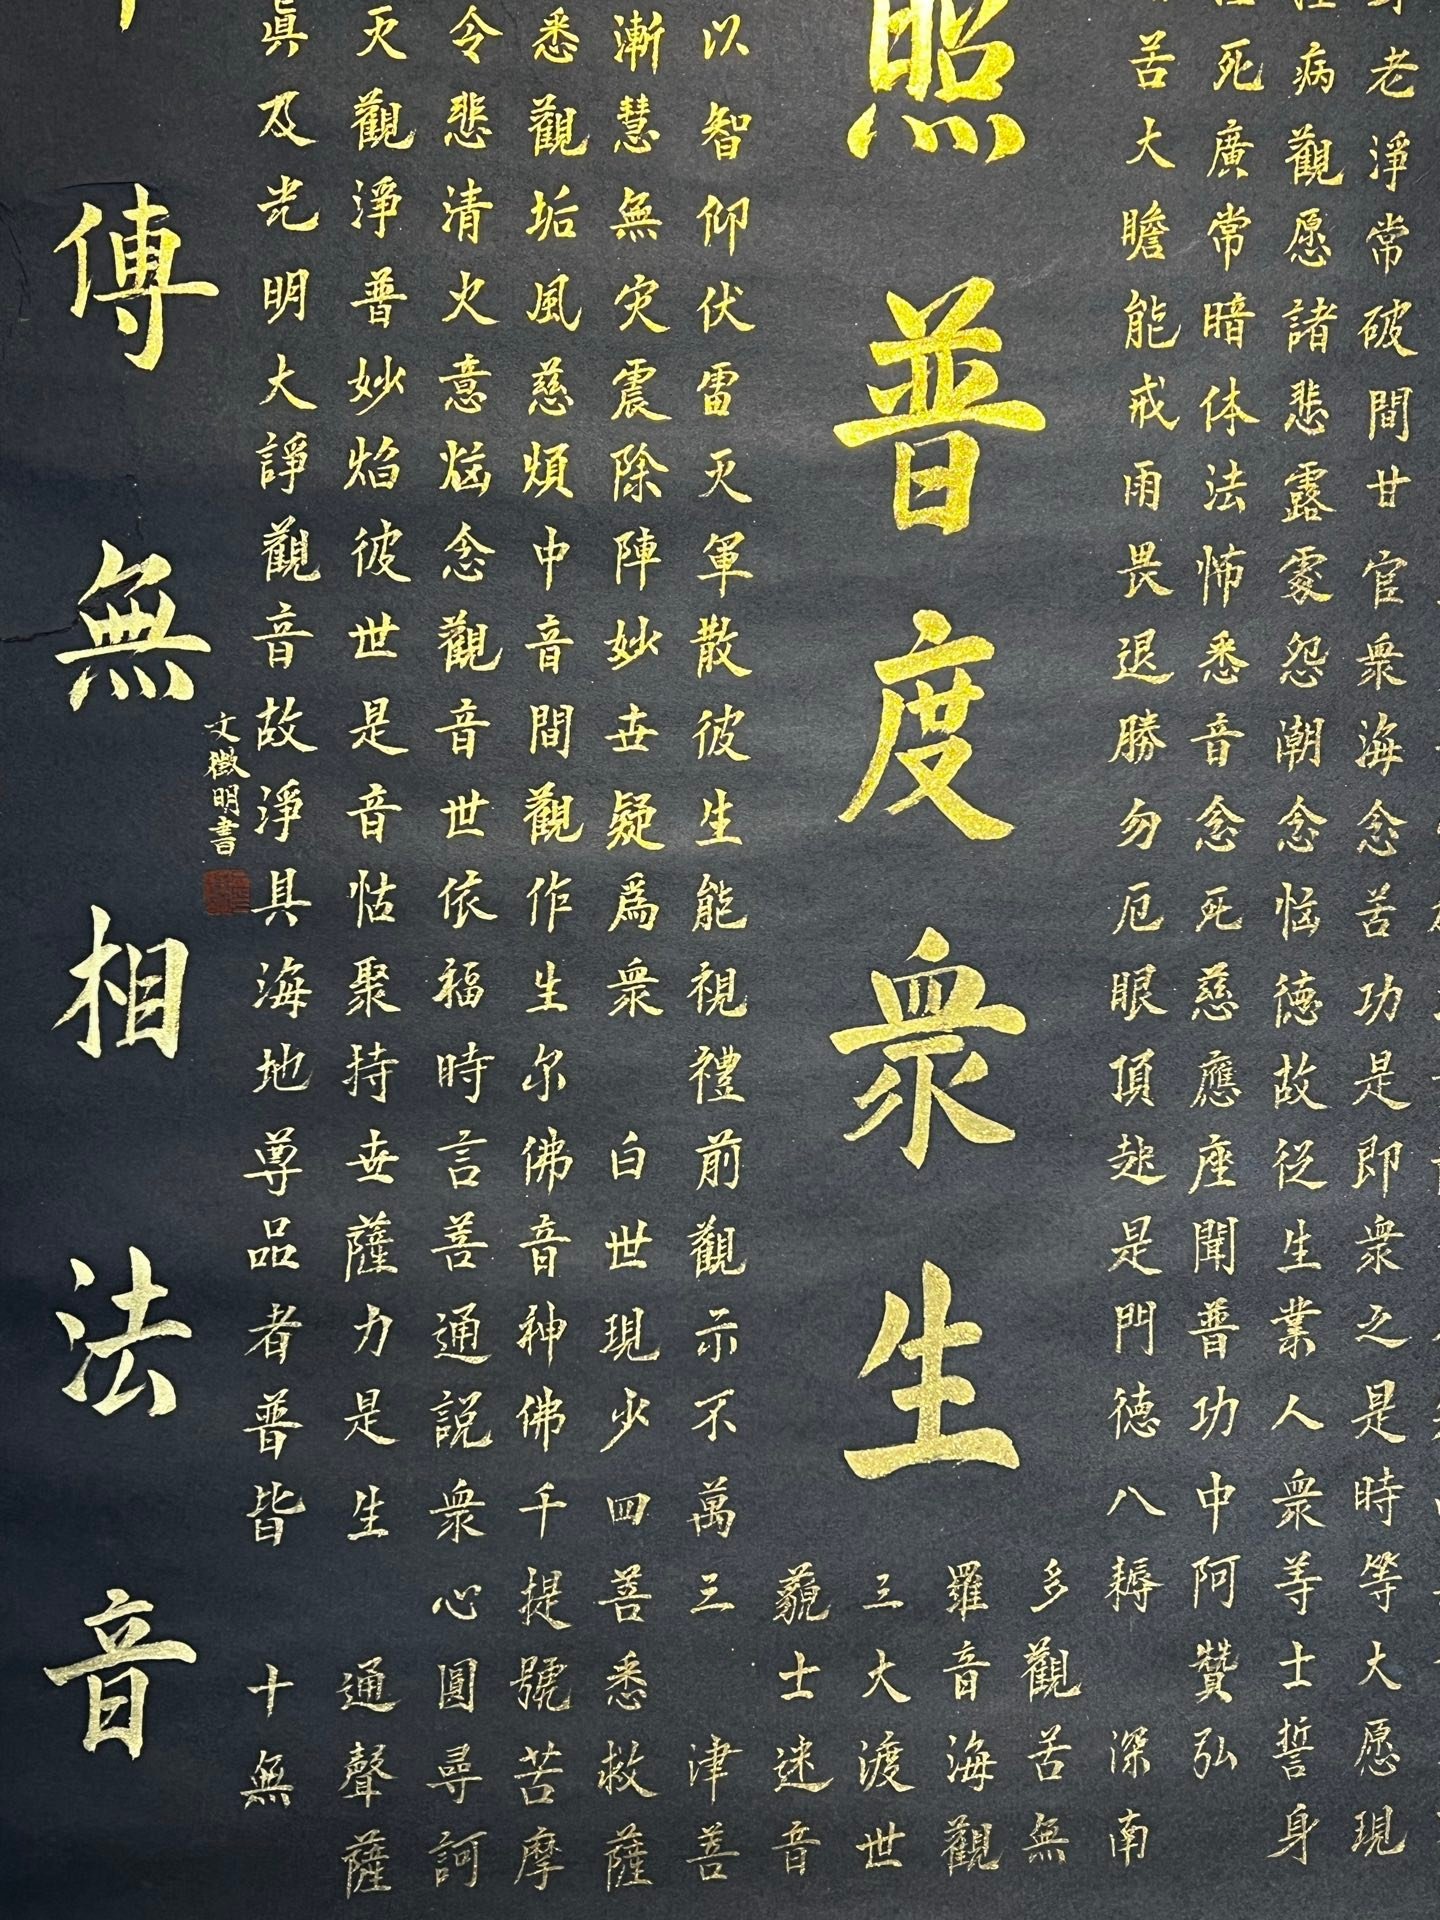 老淨常破間甘官衆海念苦功是即衆之是時等大愿現
病觀愿諸悲露處怨潮念惱德故從生業人衆等士誓身
死廣常暗体法怖悉音念死慈應座聞普功中阿贊弘
苦大瞻能戒雨畏退勝勿厄眼頂起是門德八耨 深南
多觀苦無
羅音海觀
照普度衆生
三大渡世
藐士迷音
以智仰伏雷灭軍散彼生能視禮前觀示不萬三 津菩
漸慧無灾震除陣妙世疑爲衆 白世現少四菩悉救薩
悉觀垢風慈煩中音間觀作生尔佛音神佛千提號苦摩
令悲清火意惱念觀音世依福時言菩通說衆心圓尋訶
灭觀淨普妙焰彼世是音怙聚持世薩力是生 通聲薩
眞及光明大諍觀音故淨具海地尊品者普皆 十無
文徵明書
傳無相法音